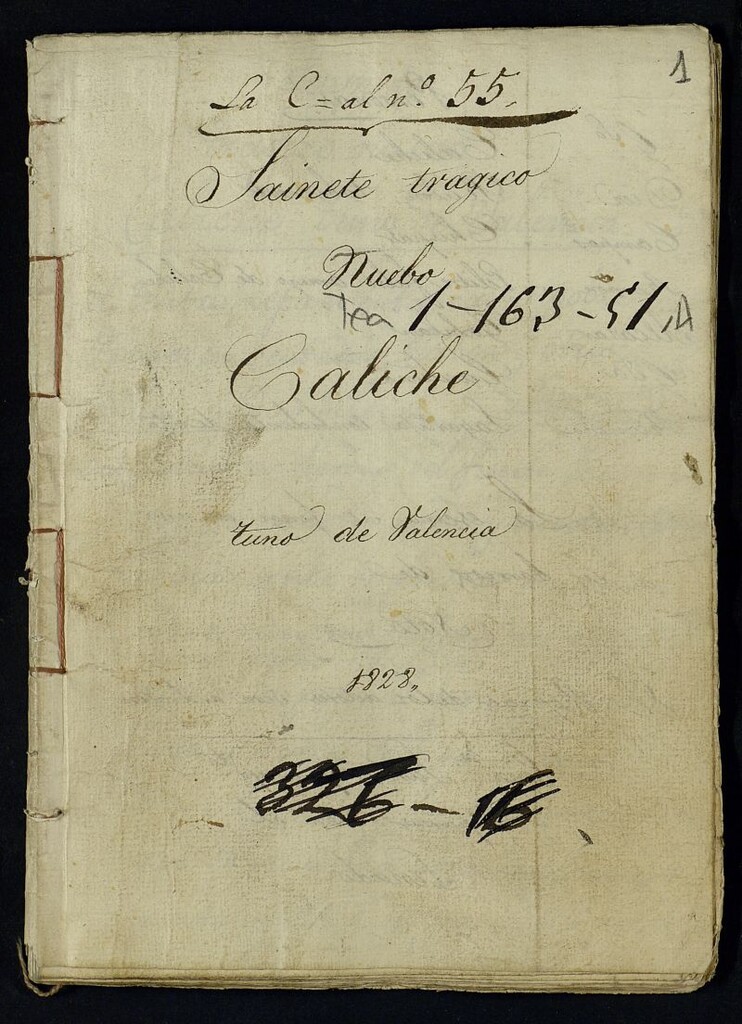 1
La C=al nº 55.
Sainete tragico
Nuebo
Tea 1-163-51, A
Caliche
tuno de Valencia
1828,,
326-16